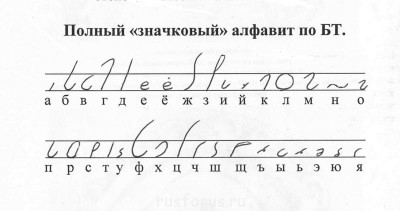 Полный «значковый» алфавит по БТ.
а б в г д е ё ж з и й к л м н о
п р с т у ф х ц ч ш щ ъ ы ь э ю я